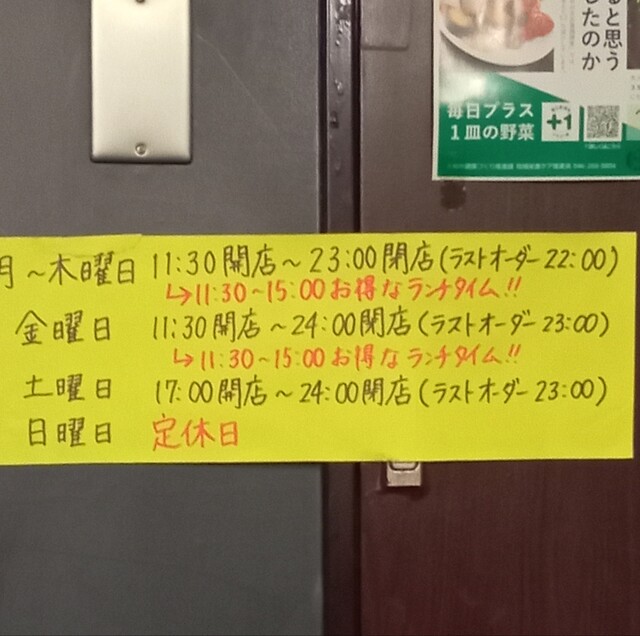 ると思う
したのか
毎日プラス
1皿の野菜
+1
月～木曜日 11:30開店～23:00閉店(ラストオーダー22:00)
↳11:30~15:00お得なランチタイム!!
金曜日 11:30開店～24:00閉店(ラストオーダー23:00)
↳11:30~15:00お得なランチタイム!!
土曜日 17:00開店～24:00閉店(ラストオーダー23:00)
日曜日 定休日